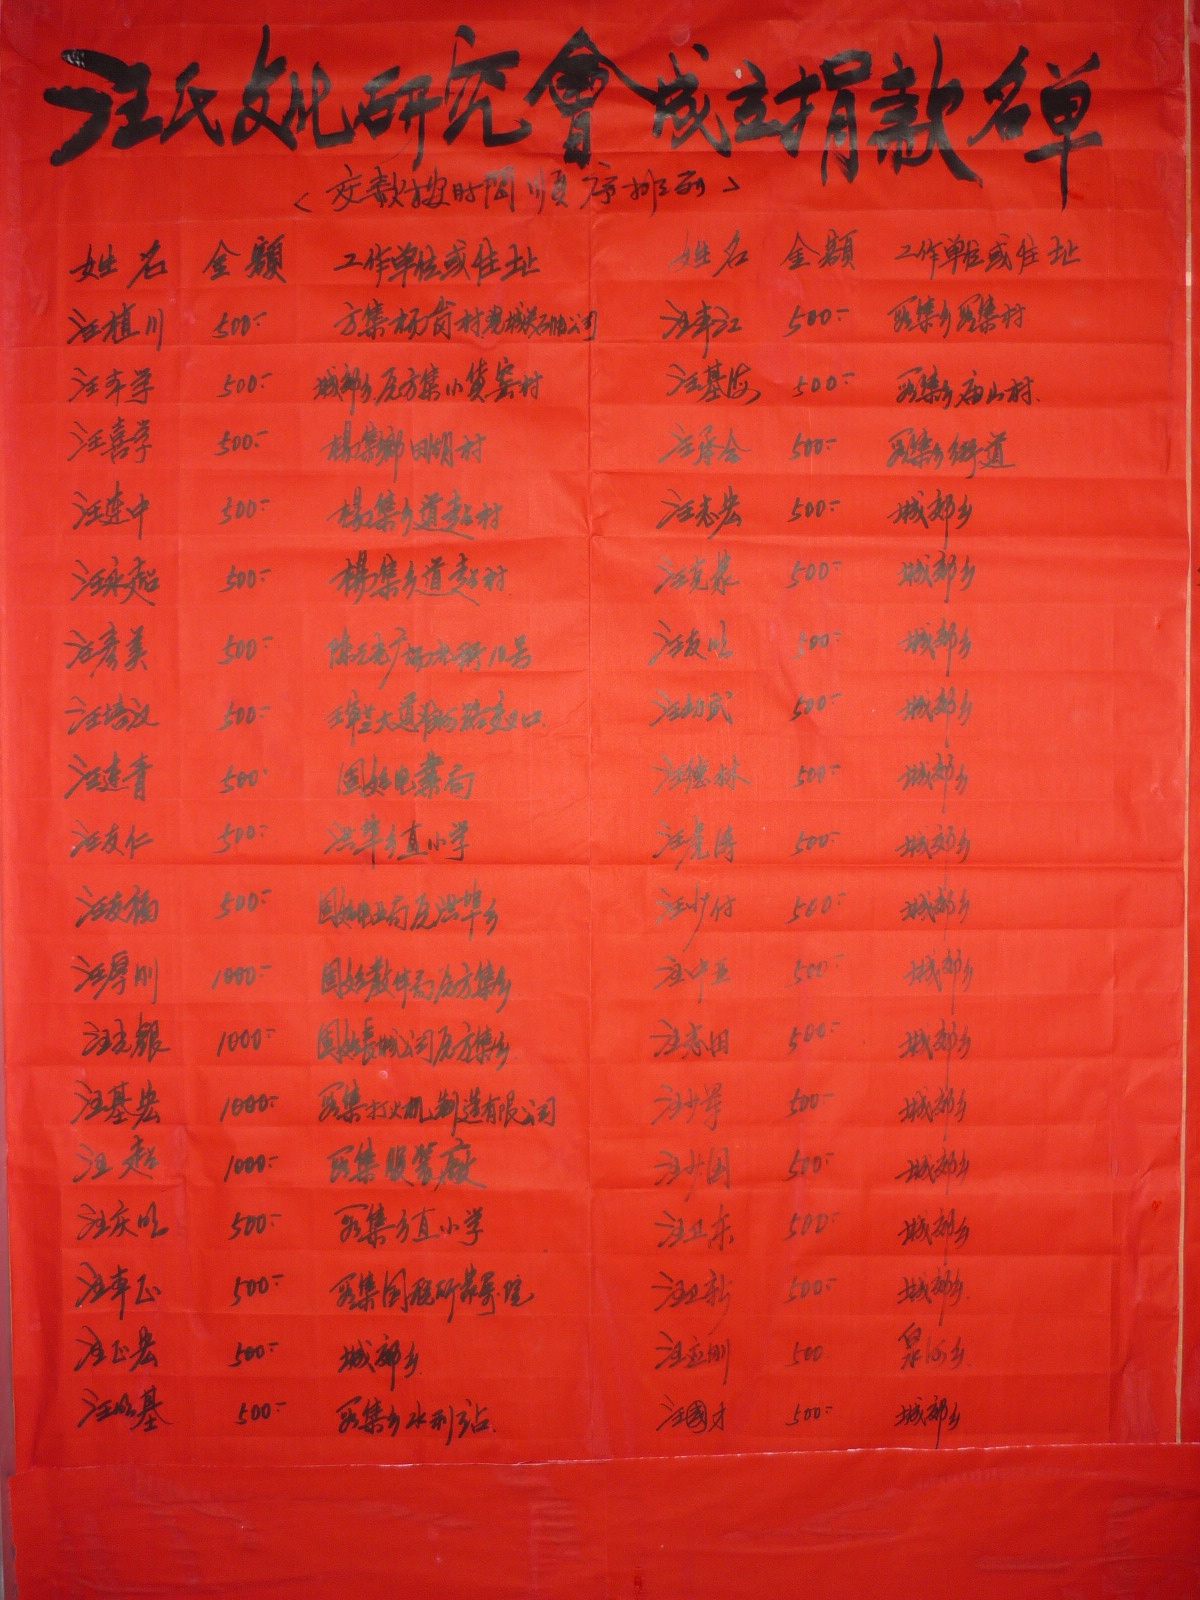 汪氏文化研究會成立捐款名单
<交款按时间顺序排列>
姓名 金额 工作单位或住址
汪植川 500- 方集杨岗村 公司
汪孝学 500- 城郊乡 方集小黄窑村
汪喜学 500- 楊集鄉田朗村
汪连中 500- 楊集乡道赵村
汪永超 500- 楊集乡道赵村
汪秀美 500- 陈元光广场 10号
汪培汉 500- 大道 路交叉口
汪连青 500- 固始电业局
汪友仁 500- 洪埠乡直小学
汪友福 500- 固始电业局 洪埠乡
汪厚刚 1000- 固始教体局 方集乡
汪克银 1000- 固始長城公司 方集乡
汪基宏 1000- 段集打火机制造有限公司
汪超 1000- 段集服装廠
汪庆明 500- 段集乡直小学
汪孝正 500- 段集
汪正宏 500- 城郊乡
汪明基 500- 段集乡水利站
姓名 金额 工作单位或住址
汪孝江 500- 段集乡段集村
汪基海 500- 段集乡庙山村
汪泽会 500- 段集乡街道
汪志宏 500- 城郊乡
汪克荣 500- 城郊乡
汪友明 500- 城郊乡
汪劲武 500- 城郊乡
汪德林 500- 城郊乡
汪克涛 500- 城郊乡
汪少付 500- 城郊乡
汪中正 500- 城郊乡
汪志田 500- 城郊乡
汪少军 500- 城郊乡
汪少国 500- 城郊乡
汪卫东 500- 城郊乡
汪卫新 500- 城郊乡
汪立刚 500 泉河乡
汪國才 500- 城郊乡